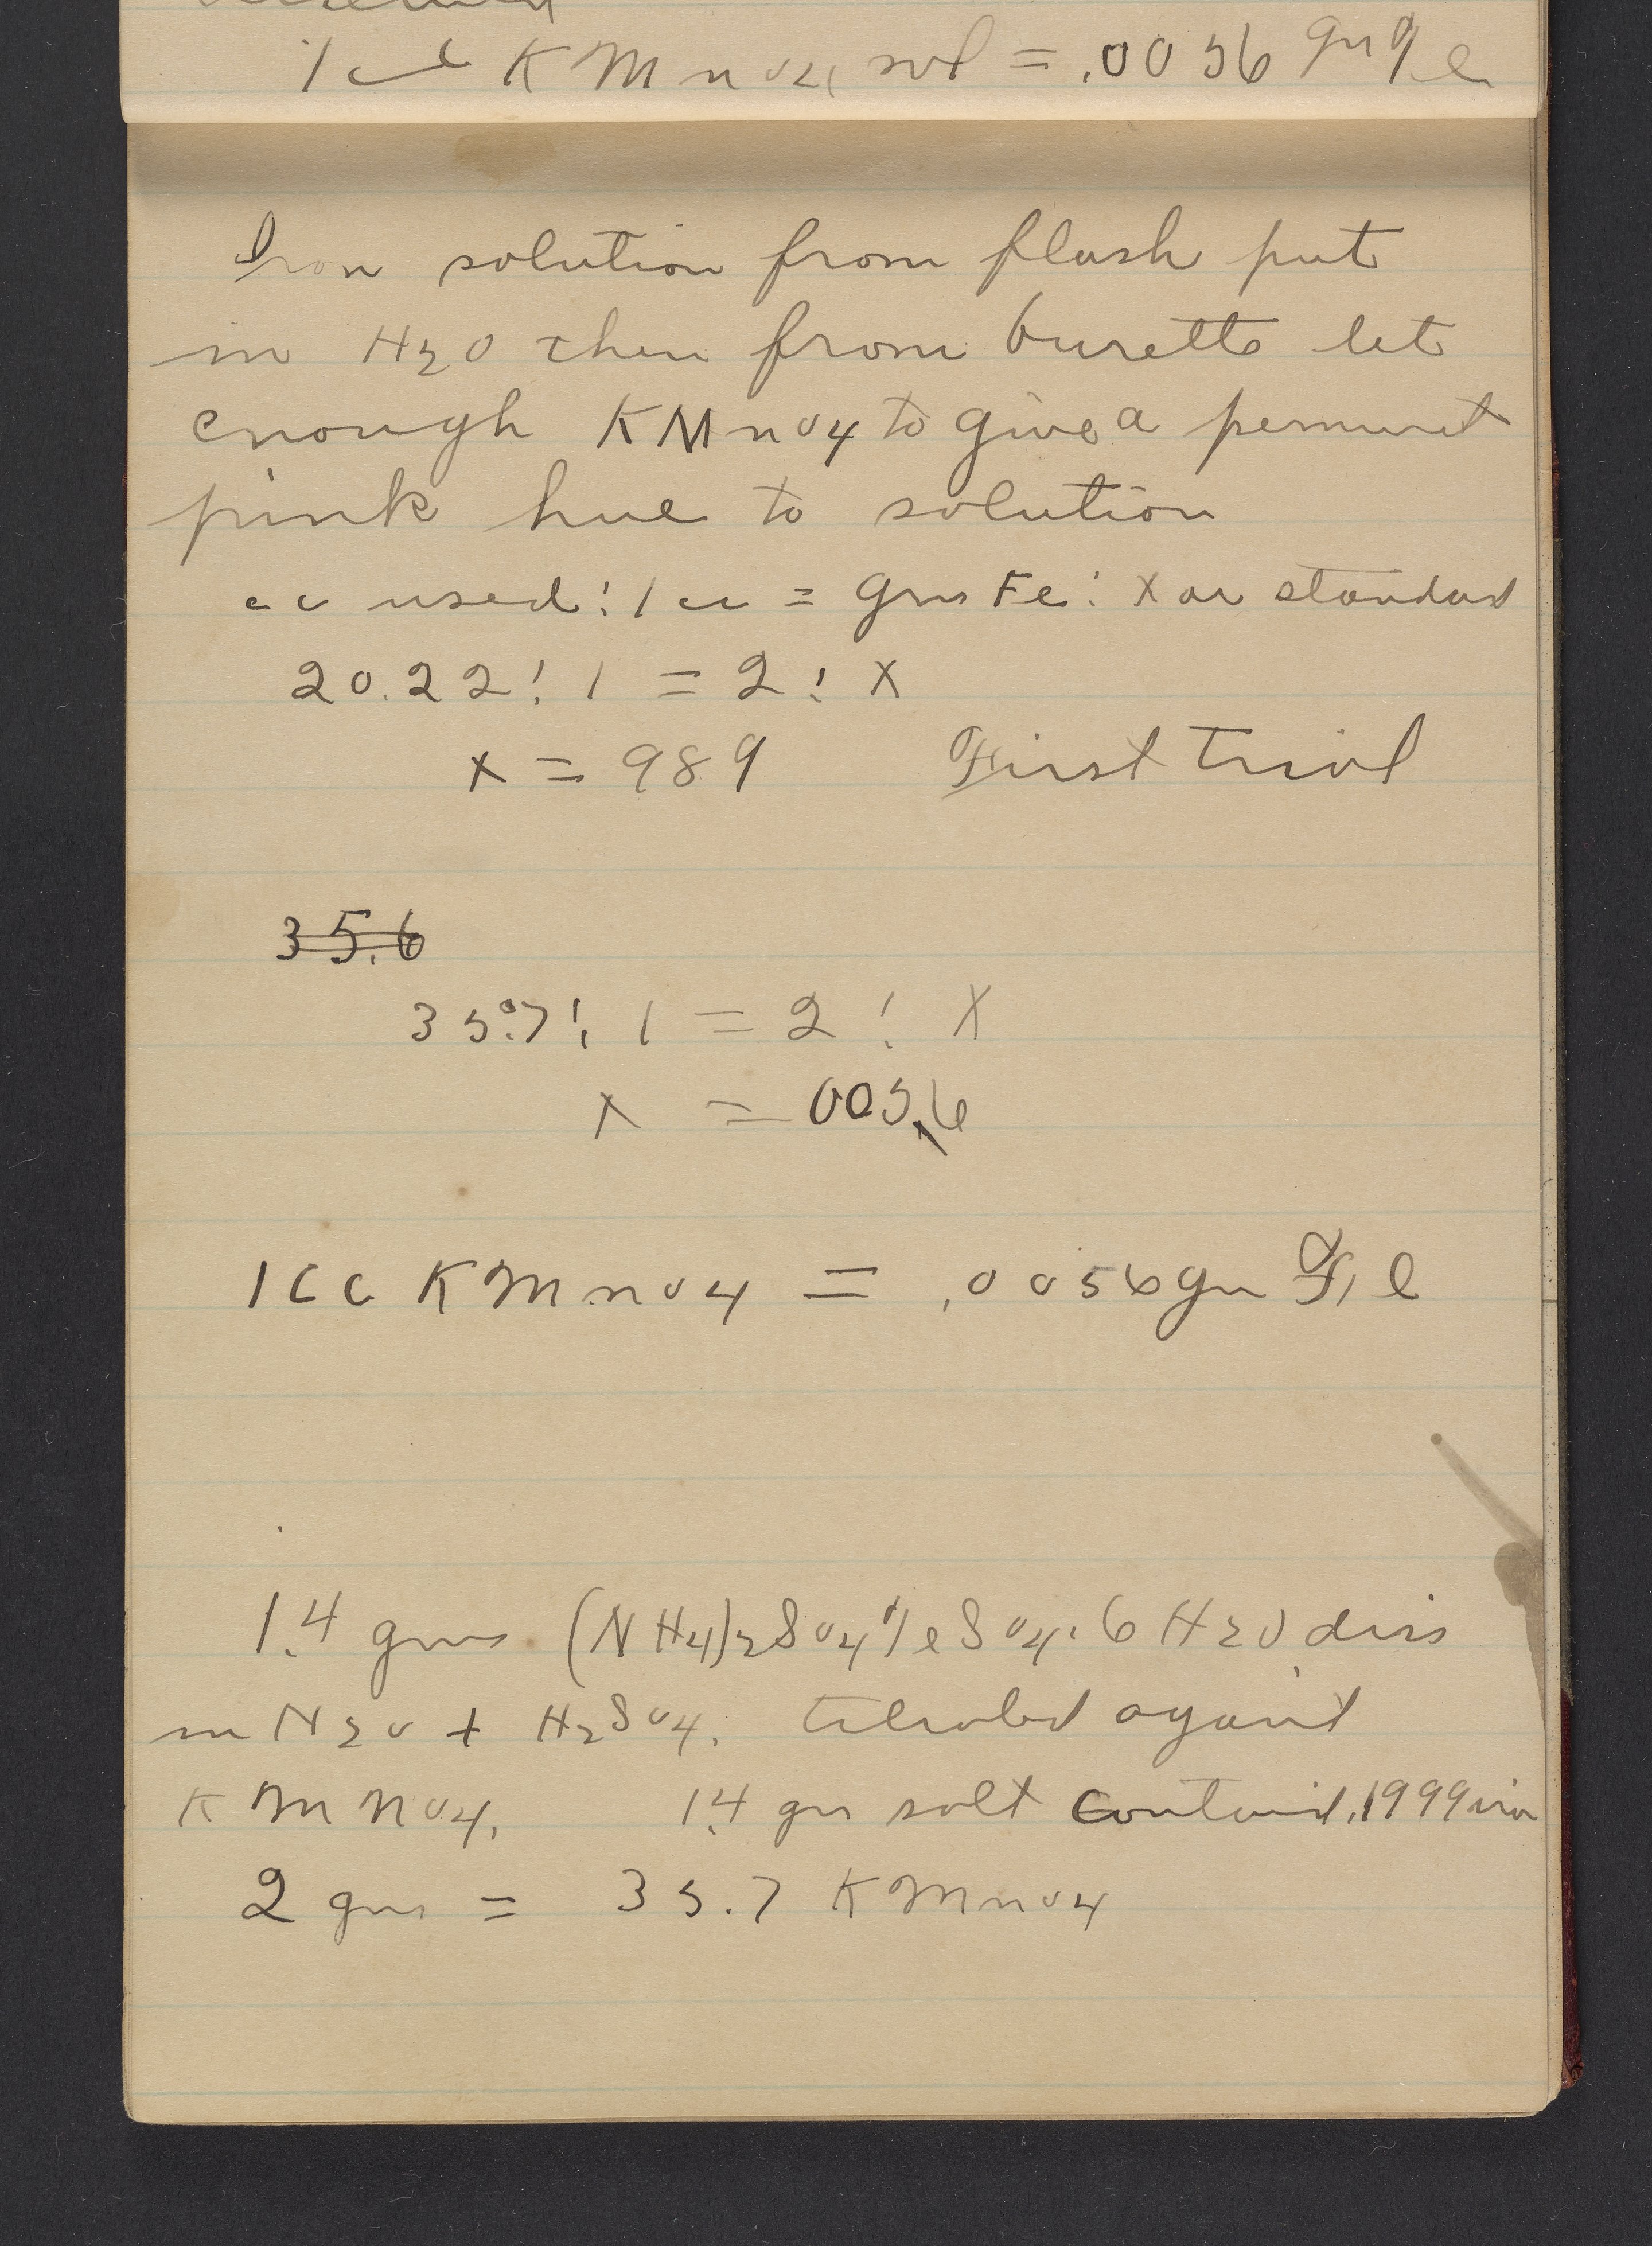 1 cc KMnO4 sol = .0056 gm Fe
Iron solution from flask put
in H2O then from burette let
enough KMnO4 to give a permenet
pink hue to solution
cc used : 1 cc = gms Fe : X or standard
20.22 : 1 = 2 : X
x = 989 First trial
35.6
35.7 : 1 = 2 : X
x = 0056
1 CC KMnO4 = .0056 gm Fe
1.4 gms (NH4)2SO4FeSO4.6H2O diss
in H2O + H2SO4. titrated against
KMnO4. 1.4 gm salt contained .1999 iron
2 gms = 35.7 KMnO4